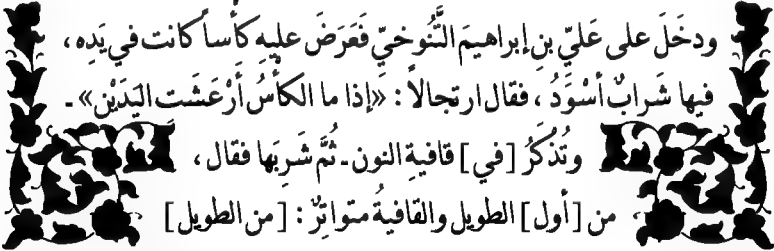 ودخَلَ على عَليّ بنِ إبراهيمَ التَّنُوخيّ فَعَرَضَ عليهِ كأساً كانت في يَدِه،
فيها شَرابٌ أسْوَدُ، فقال ارتجالاً: «إذا ما الكأسُ أرْعَشَتِ اليَدَيْنِ» ـ
وتُذْكَرُ [في] قافيةِ النون ـ ثُمَّ شَرِبَها فقال،
من [أول] الطويل والقافيةُ متواتِرٌ: [من الطويل]